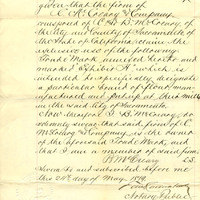 given that the firm of
C. McCreary & Company,
composed of B. B. McCreary, of
the City and County of Sacramento,
State of California, claim the
exclusive use of the following
Trade Mark annexed hereto and
marked "Exhibit A" which is
intended to specifically designate
a particular brand of flour man-
ufactured and packed at their mills
in the said City of Sacramento.
Now McCreary, do
solemnly swear that said firm of C.
McCreary & Company, is the owner
of the aforesaid Trade Mark, and
that I am a member of said firm.
McCreary L.S.
Sworn to and subscribed before me
this day of May,
Notary Public